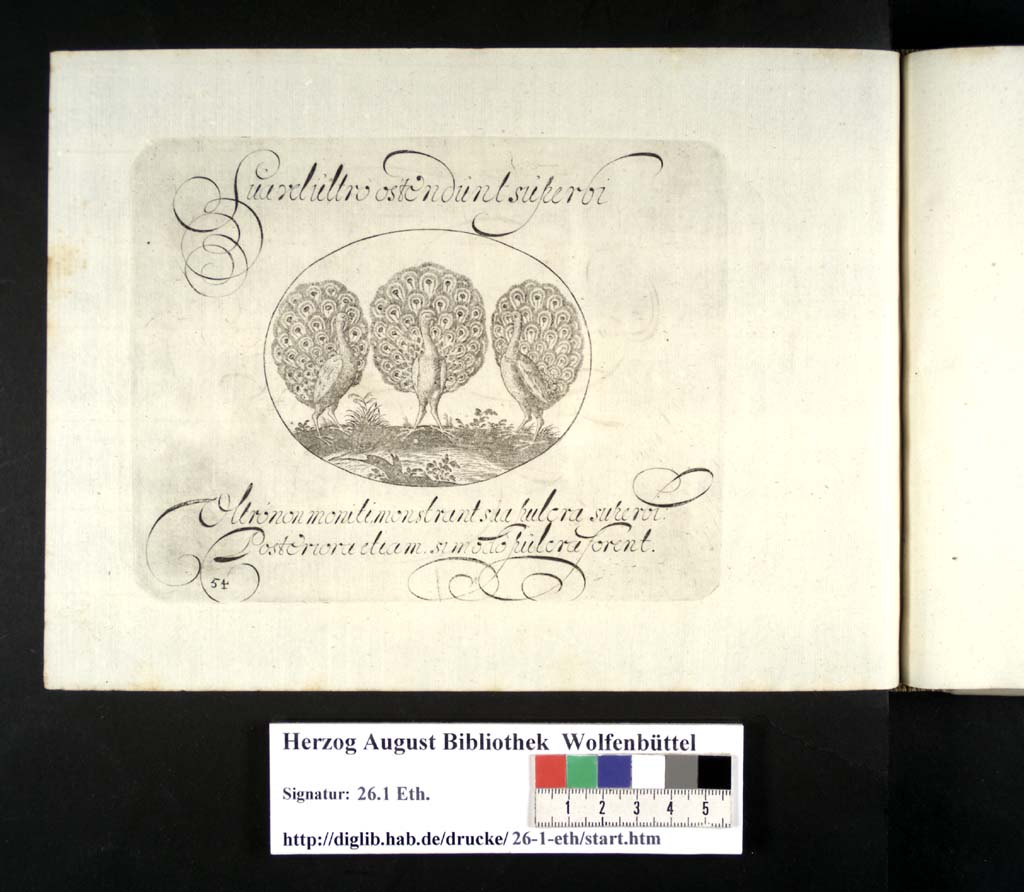 Sua vel ùltro ostendùnt sùperbi
Ultro non moniti monstrant sua pulcra superbi:
Posteriora etiam. si modo pulcra forent.
54
Herzog August Bibliothek Wolfenbüttel
Signatur: 26.1 Eth.
1 2 3 4 5
http://diglib.hab.de/drucke/ 26-1-eth/start.htm